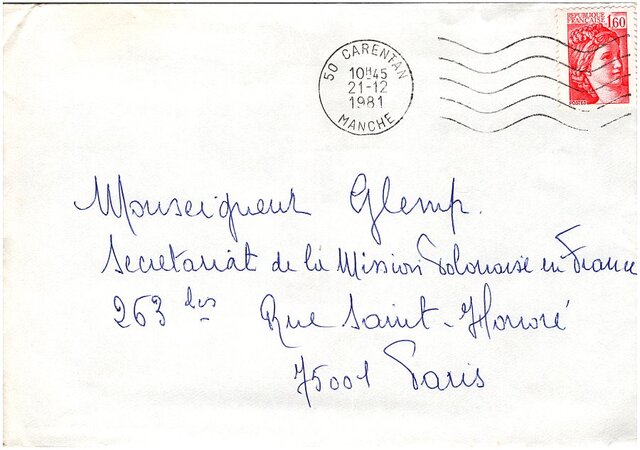 REPUBLIQUE FRANCAISE 1,60
POSTES
50 CARENTAN
10H45
21-12
1981
MANCHE
Monseigneur Glemp.
Secretariat de la Mission Polonaise en France
263 bis Rue Saint-Honoré
75001 Paris